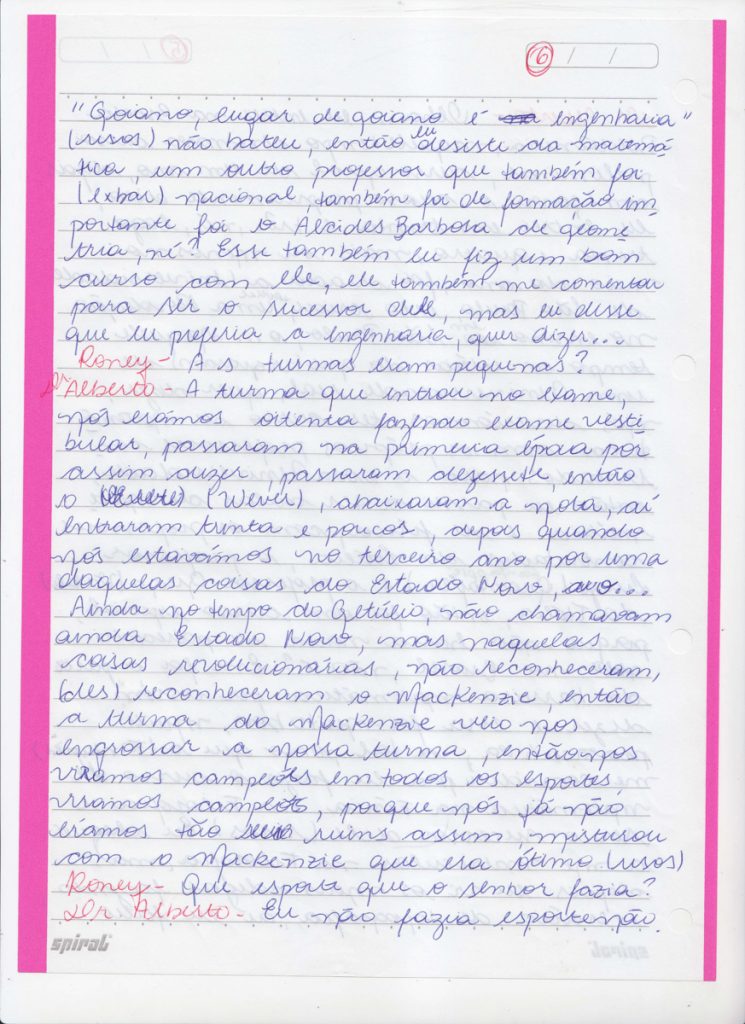 6 / /
"Goiano, lugar de goiano é engenharia"
(risos) não bateu, então eu desisti da matemá
tica, um outro professor que também foi
(exbar) nacional, também foi de formação im
portante foi o Alcides Barbosa de geome
tria, né? Esse também eu fiz um bom
curso com ele, ele também me comentou
para ser o sucessor dele, mas eu disse
que eu preferia a engenharia, quer dizer...
Roney - As turmas eram pequenas?
Dr Alberto - A turma que entrou no exame,
nós erámos oitenta fazendo exame vesti
bular, passaram na primeira época por
assim dizer, passaram dezessete, então
o (Wever), abaixaram a nota, aí
entraram trinta e poucos, depois quando
nós estavámos no terceiro ano por uma
daquelas coisas do Estado Novo, ...
Ainda no tempo do Getúlio, não chamavam
ainda Estado Novo, mas naquelas
coisas revolucionárias, não reconheceram,
(des) reconheceram o Mackenzie, então
a turma do Mackenzie veio nos
engrossar a nossa turma, então nos
viramos campeões em todos os esportes,
viramos campeões, porque nós já não
erámos tão ruins assim, misturou
com o Mackenzie que era ótimo (risos)
Roney - Que esporte que o senhor fazia?
Dr Alberto - Eu não fazia esporte não.
spiral